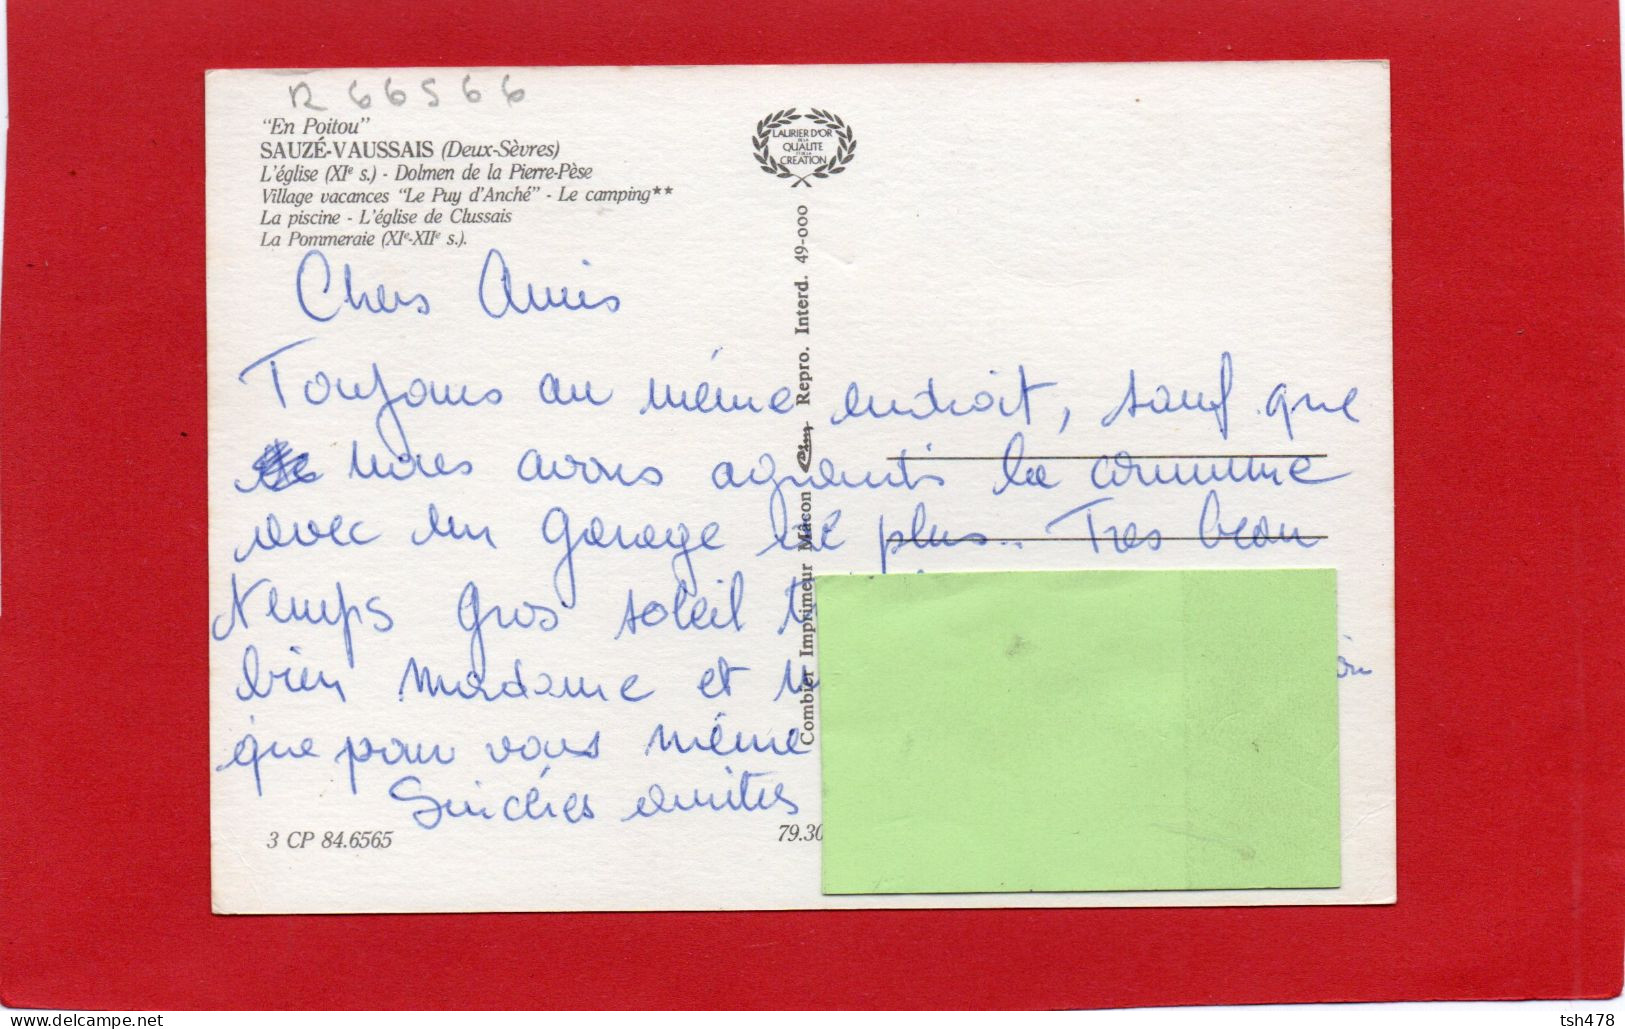 R 66566
"En Poitou"
SAUZÉ-VAUSSAIS (Deux-Sèvres)
L'église (XIe s.) - Dolmen de la Pierre-Pèse
Village vacances "Le Puy d'Anché" - Le camping**
La piscine - L'église de Clussais
La Pommeraie (XIe-XIIe s.).
LAURIER D'OR
DE LA
QUALITE
ET DE LA
CREATION
Combier Imprimeur Mâcon Repro. Interd. 49-000
Chers Amis
Toujours au même endroit, sauf que
nous avons agrandis la commune
avec un garage de plus.. Tres beau
temps gros soleil
bien Madame et
que pour vous même
amitiés
3 CP 84.6565
79.30
tsh478